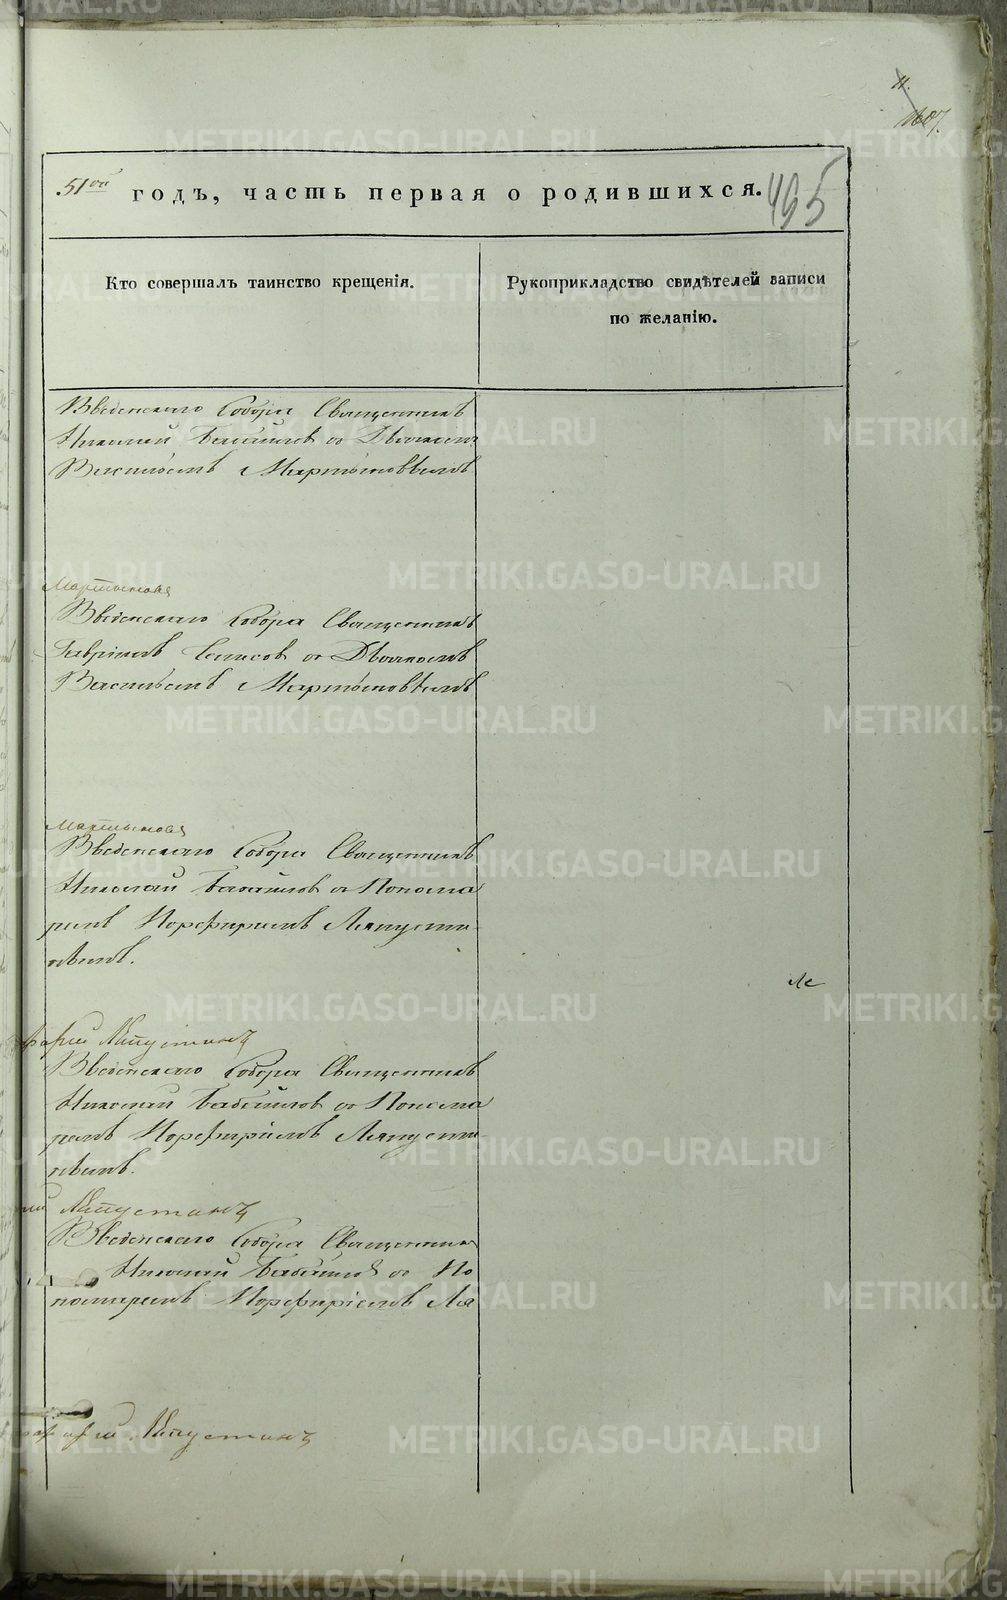 11.
1607.
51ой годъ, часть первая о родившихся.
495
Кто совершалъ таинство крещенія.
Рукоприкладство свидѣтелей записи
по желанію.
Введенскаго Собора Священникъ
Николай со Дьячкомъ
Васильемъ Мартыновымъ
Мартыновъ
Введенскаго Собора Священникъ
Гавріилъ со Дьячкомъ
Васильемъ Мартыновымъ
Мартыновъ
Введенскаго Собора Священникъ
Николай со Понома
ремъ Порфиріемъ Ляпусти
новымъ.
Ляпустинъ
Введенскаго Собора Священникъ
Николай со Понома
ремъ Порфиріемъ Ляпусти
новымъ.
Ляпустинъ
Введенскаго Собора Священникъ
Николай со По
номаремъ Порфиріемъ Ля
Ляпустинъ
METRIKI.GASO-URAL.RU